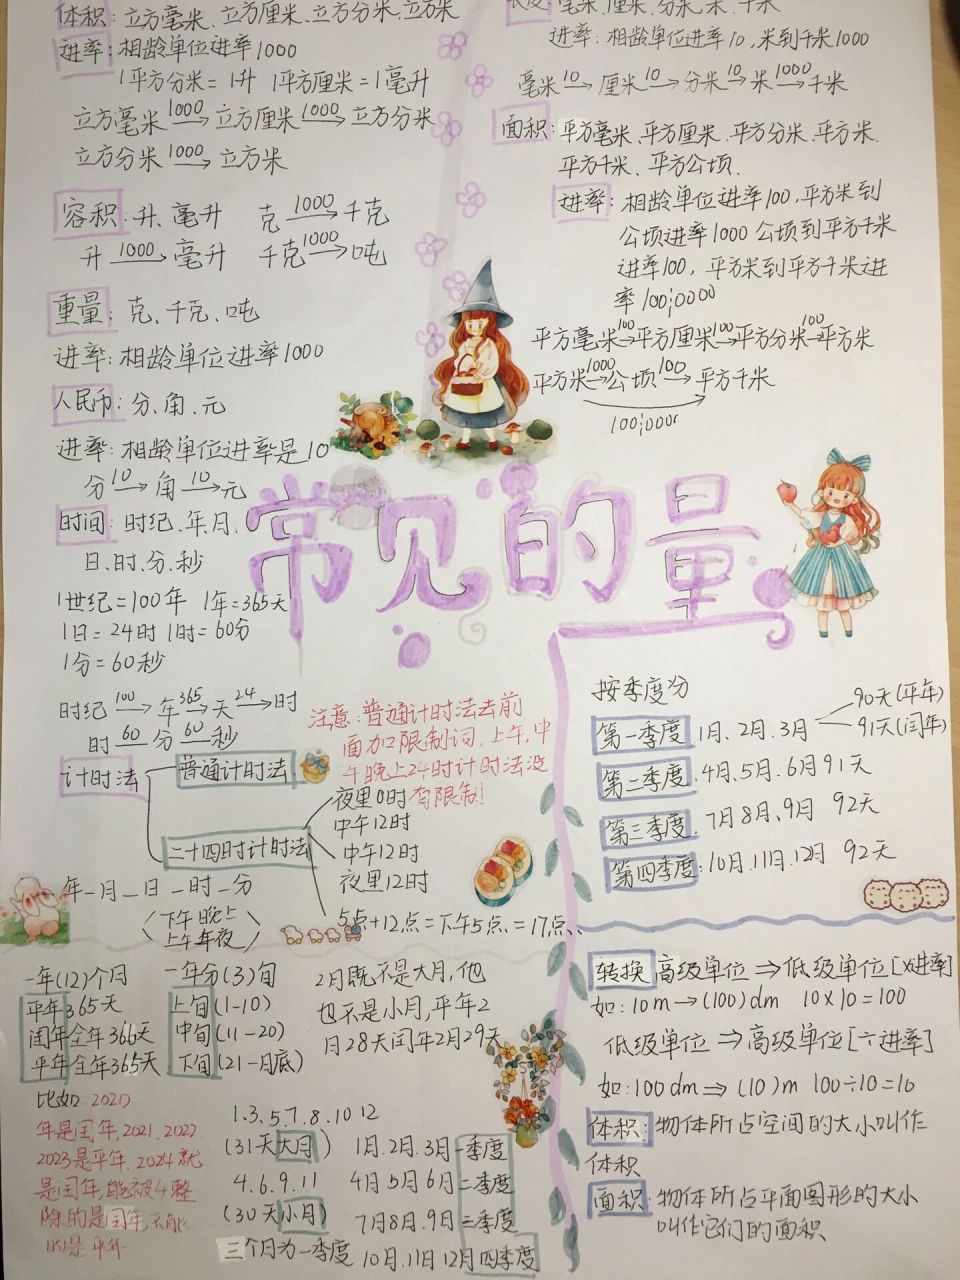 体积：立方毫米、立方厘米、立方分米、立方米
进率：相龄单位进率1000
1平方分米=1升 1平方厘米=1毫升
立方毫米 1000→ 立方厘米 1000→ 立方分米
立方分米 1000→ 立方米
容积：升、毫升 克 1000→ 千克
升 1000→ 毫升 千克 1000→ 吨
重量：克、千克、吨
进率：相龄单位进率1000
人民币：分、角、元
进率：相龄单位进率是10
分 10→ 角 10→ 元
时间：时纪、年、月、
日、时、分、秒
1世纪=100年 1年=365天
1日=24时 1时=60分
1分=60秒
时纪 100→ 年 365→ 天 24→ 时
时 60 分 60 秒
长度：毫米、厘米、分米、米、千米
进率：相龄单位进率10，米到千米1000
毫米 10→ 厘米 10→ 分米 10→ 米 1000→ 千米
面积：平方毫米、平方厘米、平方分米、平方米、
平方千米、平方公顷、
进率：相龄单位进率100，平方米到
公顷进率1000 公顷到平方千米
进率100，平方米到平方千米进
率100;0000
平方毫米 100→ 平方厘米 100→ 平方分米 100→ 平方米
平方米 1000→ 公顷 100→ 平方千米
100;0000
常见的量
计时法
普通计时法
二十四时计时法
注意：普通计时法去前
面加限制词，上午，中
午晚上24时计时法没
有限制！
夜里0时
中午12时
中午12时
夜里12时
年_月_日_时_分
下午 晚上
上午 年夜
5点+12点=下午5点=17点、
按季度分
第一季度 1月、2月、3月 90天(平年)
91天(闰年)
第二季度、4月、5月、6月 91天
第三季度、7月8月、9月 92天
第四季度：10月、11月、12月 92天
一年(12)个月
平年365天
闰年全年366天
平年全年365天
比如：2020
年是闰年，2021、2022、
2023是平年，2024就
是闰年，能被4整
除的是闰年，不能
的是平年
一年分(3)旬
上旬(1-10)
中旬(11-20)
下旬(21-月底)
2月既不是大月，他
也不是小月，平年2
月28天闰年2月29天
1.3.5.7.8.10 12
(31天大月)
4.6.9.11
(30天小月)
三个月为一季度
1月.2月.3月一季度
4月5月6月二季度
7月8月.9月三季度
10月.11日12月四季度
转换 高级单位⇒低级单位[×进率]
如：10m→(100)dm 10×10=100
低级单位⇒高级单位[÷进率]
如：100dm⇒(10)m 100÷10=10
体积：物体所占空间的大小叫作
体积
面积：物体所占平面图形的大小
叫作它们的面积